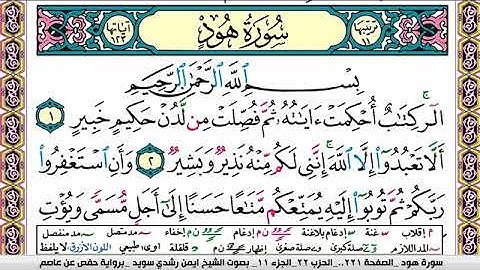 ترتيبها ١١
سُورَةُ هُودٍ
آياتها ١٢٣
بِسْمِ اللَّهِ الرَّحْمَٰنِ الرَّحِيمِ
الٓر كِتَٰبٌ أُحْكِمَتْ ءَايَٰتُهُۥ ثُمَّ فُصِّلَتْ مِن لَّدُنْ حَكِيمٍ خَبِيرٍ ١
أَلَّا تَعْبُدُوٓا۟ إِلَّا اللَّهَ إِنَّنِى لَكُم مِّنْهُ نَذِيرٌ وَبَشِيرٌ ٢ وَأَنِ اسْتَغْفِرُوا۟
رَبَّكُمْ ثُمَّ تُوبُوٓا۟ إِلَيْهِ يُمَتِّعْكُم مَّتَٰعًا حَسَنًا إِلَىٰٓ أَجَلٍ مُّسَمًّى وَيُؤْتِ
م إقلاب غنة إدغام بلاغنة ن م إدغام ن م إخفاء مد متصل مد منفصل
المد اللازم صلة صغرى ن م إظهار قلقلة اوى طبيعي اللون الأزرق لا يلفظ
سورة هود _ الصفحة ٢٢١..الحزب ٢٢_الجزء ١١ _ بصوت الشيخ ايمن رشدي سويد _برواية حفص عن عاصم